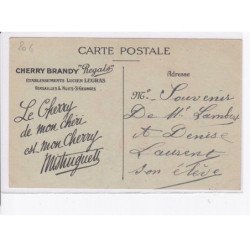 806
CARTE POSTALE
CHERRY BRANDY "Regals"
ETABLISSEMENTS LUCIEN LEGRAS
VERSAILLES &
Adresse
Le Cherry
de mon chéri
est mon Cherry
Mistinguett
Souvenir
De Mr Lambey
A Denise
Laurent
son élève